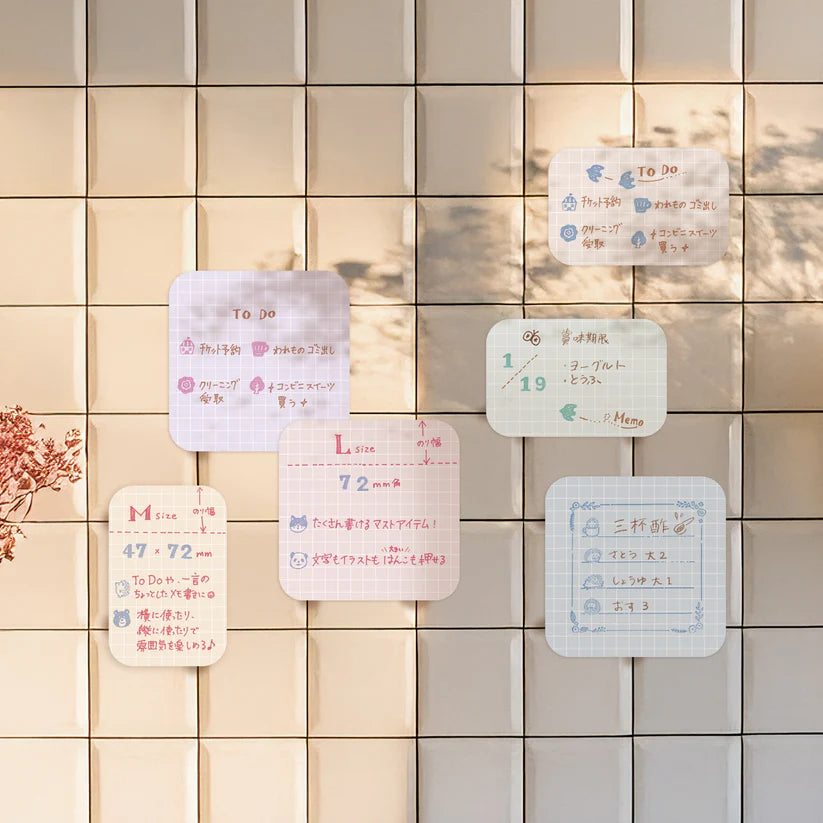 To Do
チケット予約
われもの ゴミ出し
クリーニング
受取
コンビニスイーツ
買う
To Do
チケット予約
われもの ゴミ出し
クリーニング
受取
コンビニスイーツ
買う
賞味期限
1/19
・ヨーグルト
・とうふ
Memo
L size
のり幅
72mm角
たくさん書けるマストアイテム!
大きい
文字もイラストもはんこも押せる
M size
のり幅
47×72mm
To Doや、一言の
ちょっとしたメモ書きに
横に使ったり、
縦に使ったりで
雰囲気を楽しめる♪
三杯酢
さとう 大2
しょうゆ 大1
おす 3